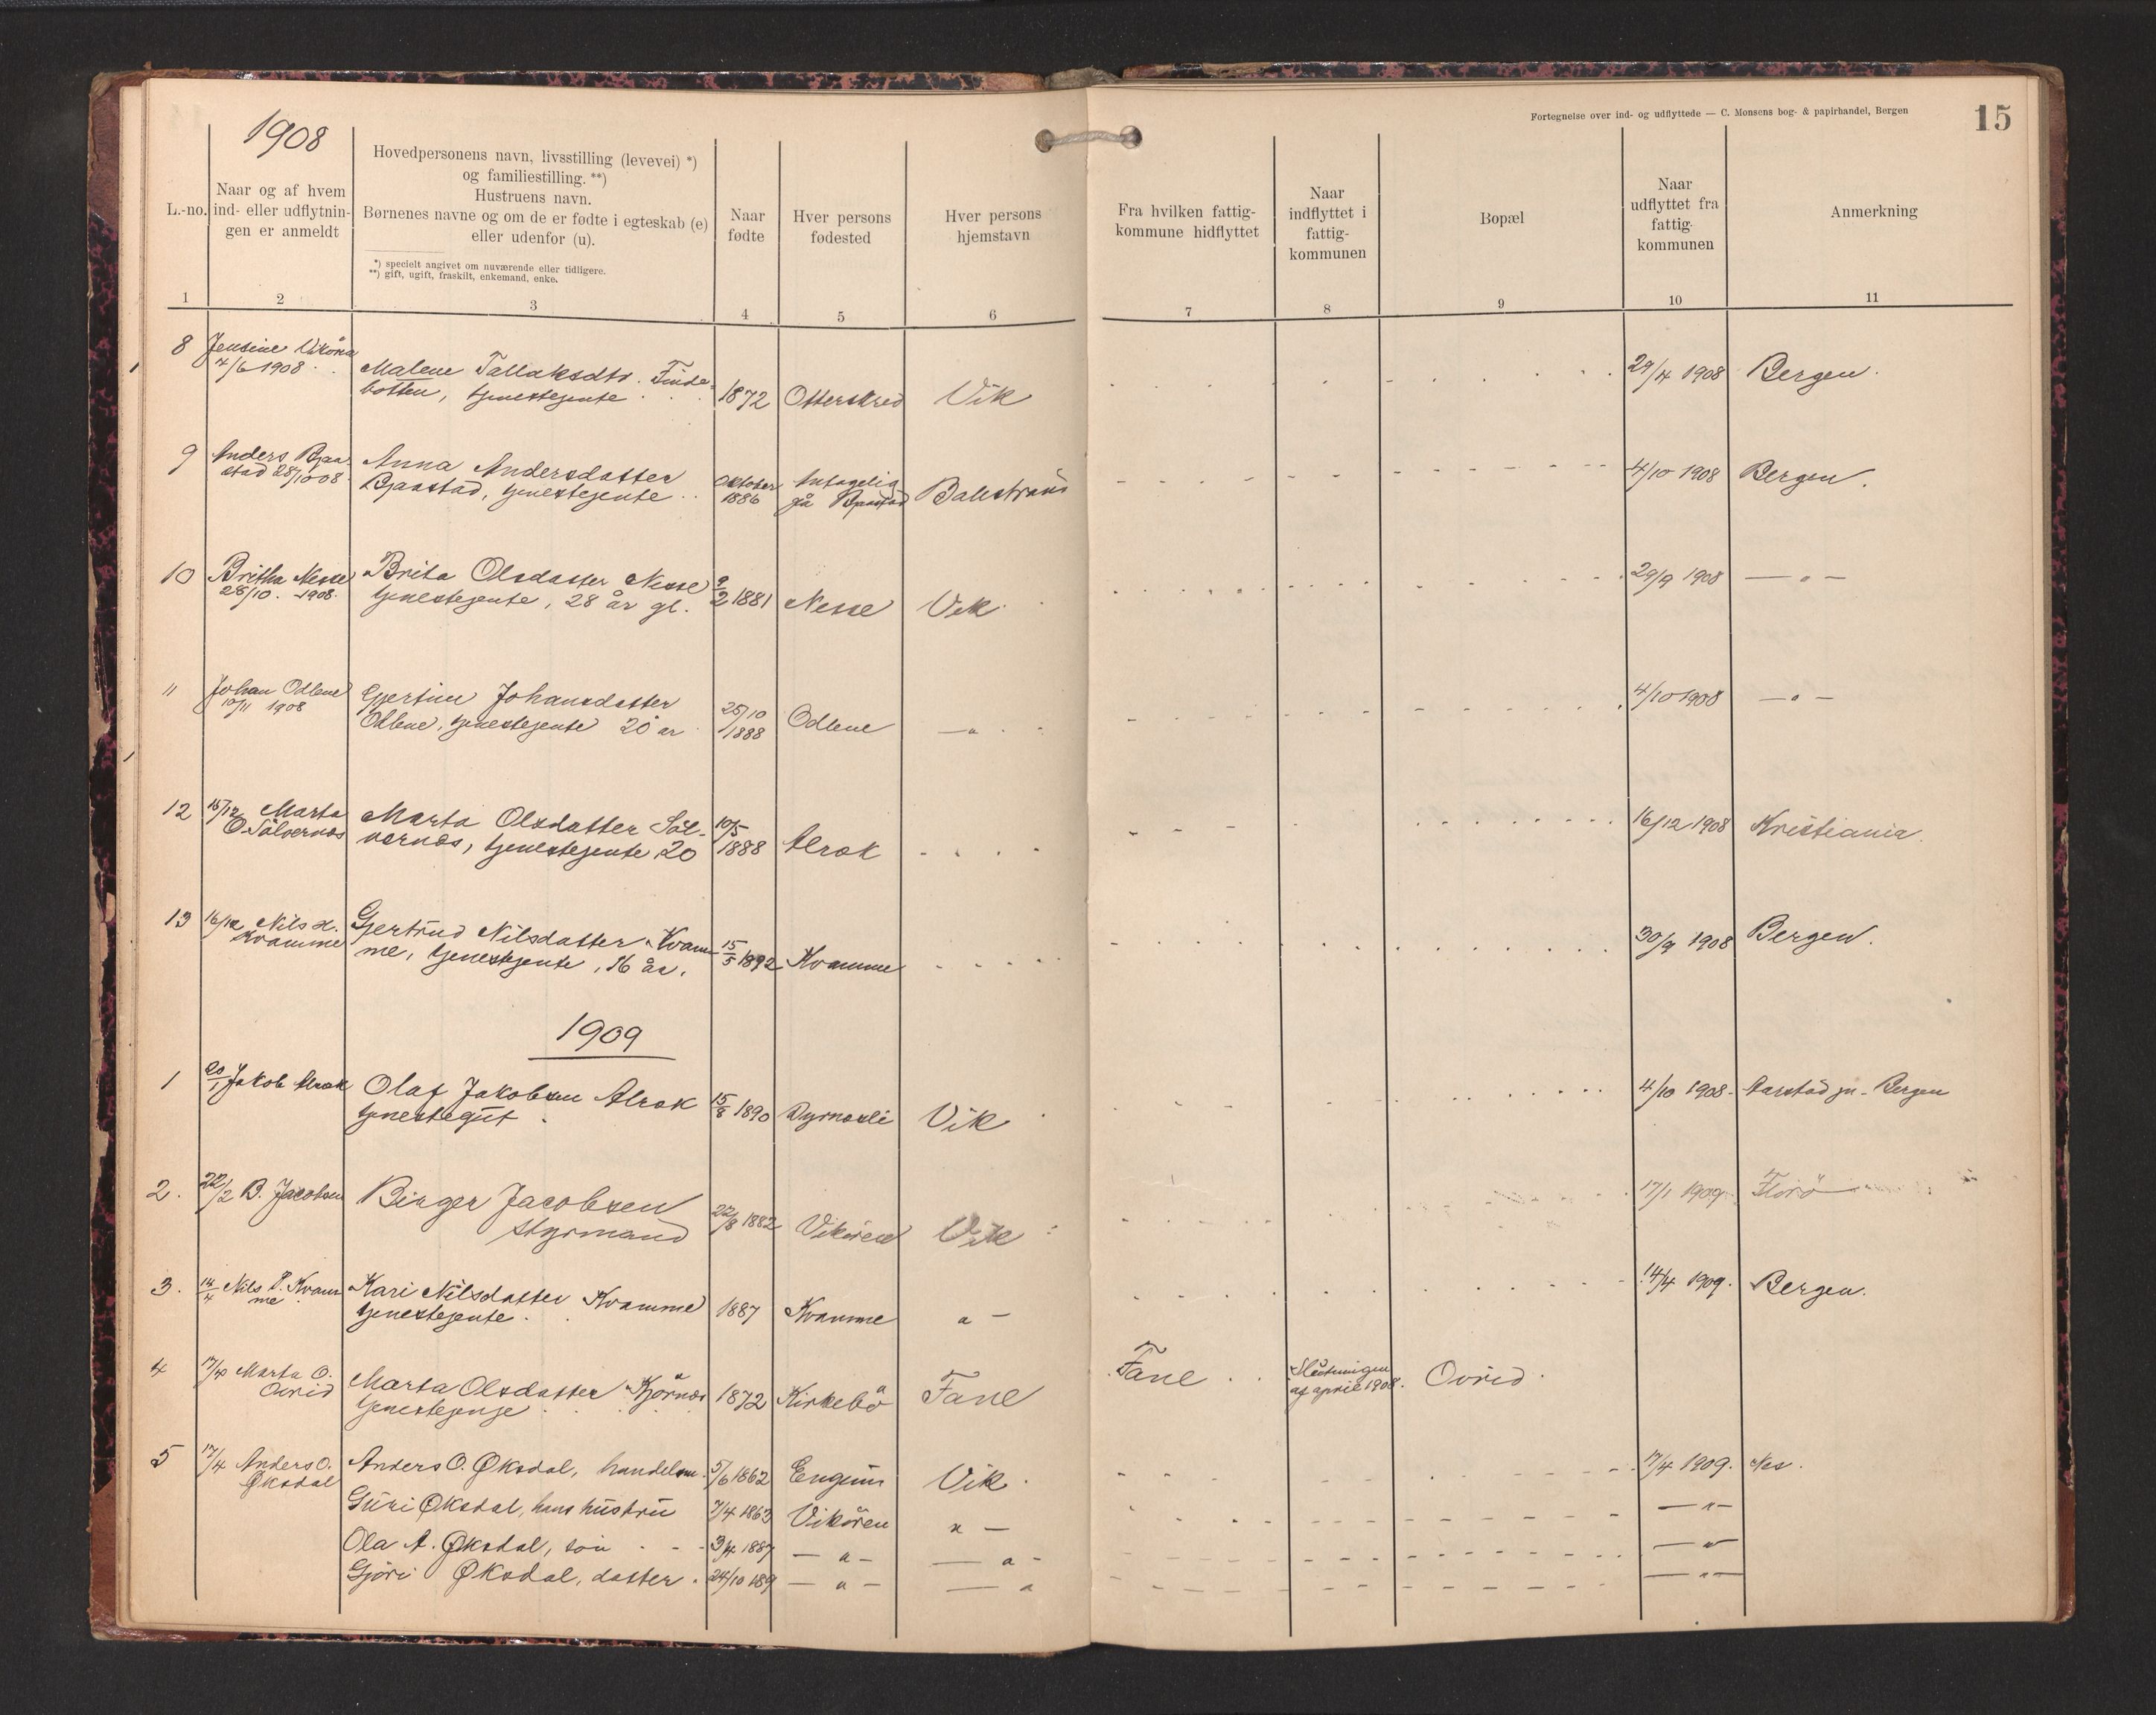 1908
Fortegnelse over ind- og udflyttede — C. Monsens bog- & papirhandel, Bergen
15
L.-no.
Naar og af hvem
ind- eller udflytnin-
gen er anmeldt
Hovedpersonens navn, livsstilling (levevei) *)
og familiestilling. **)
Hustruens navn.
Børnenes navne og om de er fødte i egteskab (e)
eller udenfor (u).
*) specielt angivet om nuværende eller tidligere.
**) gift, ugift, fraskilt, enkemand, enke.
Naar
fødte
Hver persons
fødested
Hver persons
hjemstavn
Fra hvilken fattig-
kommune hidflyttet
Naar
indflyttet i
fattig-
kommunen
Bopæl
Naar
udflyttet fra
fattig-
kommunen
Anmerkning
1 2 3 4 5 6 7 8 9 10 11
8 Jensine Vikøren
4/6 1908
Malene Tallaksdtr. Finde-
botten, tjenestejente 1872 Otterskred Vik 29/4 1908 Bergen.
9 Anders Bjaa-
stad 28/10 08
Anna Andersdatter
Bjaastad, tjenestejente
oktober
1886
Antagelig
på Bjaastad
Balestrand 4/10 1908 Bergen.
10 Britha Nesse
28/10 1908.
Brita Olsdatter Nesse
tjenestejente, 28 år gl. 9/2 1881 Nesse Vik 29/9 1908 — " —
11 Johan Odlene
10/11 1908
Gjertine Johansdatter
Odlene, tjenestejente 20 år
25/10
1888
Odlene — " 4/10 1908 — " —
12 15/12 Marta
O. Sälvernes
Marta Olsdatter Säl-
vernes, tjenestejente, 20
10/5
1888
Alrek 16/12 1908 Kristiania.
13 16/12 Nils
Kvamme
Gjertrud Nilsdatter Kvam-
me, tjenestejente, 16 år. 15/5 1892 Kvamme 30/9 1908 Bergen.
1909
1 20/1 Jakob Alrek
Olaf Jakobsen Alrek
tjenestegut 15/8 1890 Dyrnesli Vik 4/10 1908 Aarstad pr. Bergen
2. 22/2 B. Jacobsen
Birger Jacobsen
styrmand 22/8 1882 Vikøren Vik 17/1 1909 Florö
3. 14/4 Nils P. Kvam-
me
Kari Nilsdatter Kvamme
tjenestejente. 1887 Kvamme " — 14/4 1909. Bergen.
4 17/4 Marta O.
Ovrid
Marta Olsdatter Kjörnes
tjenestejenje 1872 Kirkebö Fane Fane
Slutningen
af april 1908.
Ovrid.
5 17/4 Anders O.
Øksdal
Anders O. Øksdal, handelsm. 5/6 1862 Engum Vik 17/4 1909. Nes.
Guri Øksdal, hans hustru 7/4 1863 Vikören " — — " —
Ola A. Øksdal, sön 3/4 1887 — " — — " — — "
Gjöri Øksdal, datter. 24/10 189 — " — — " — " —